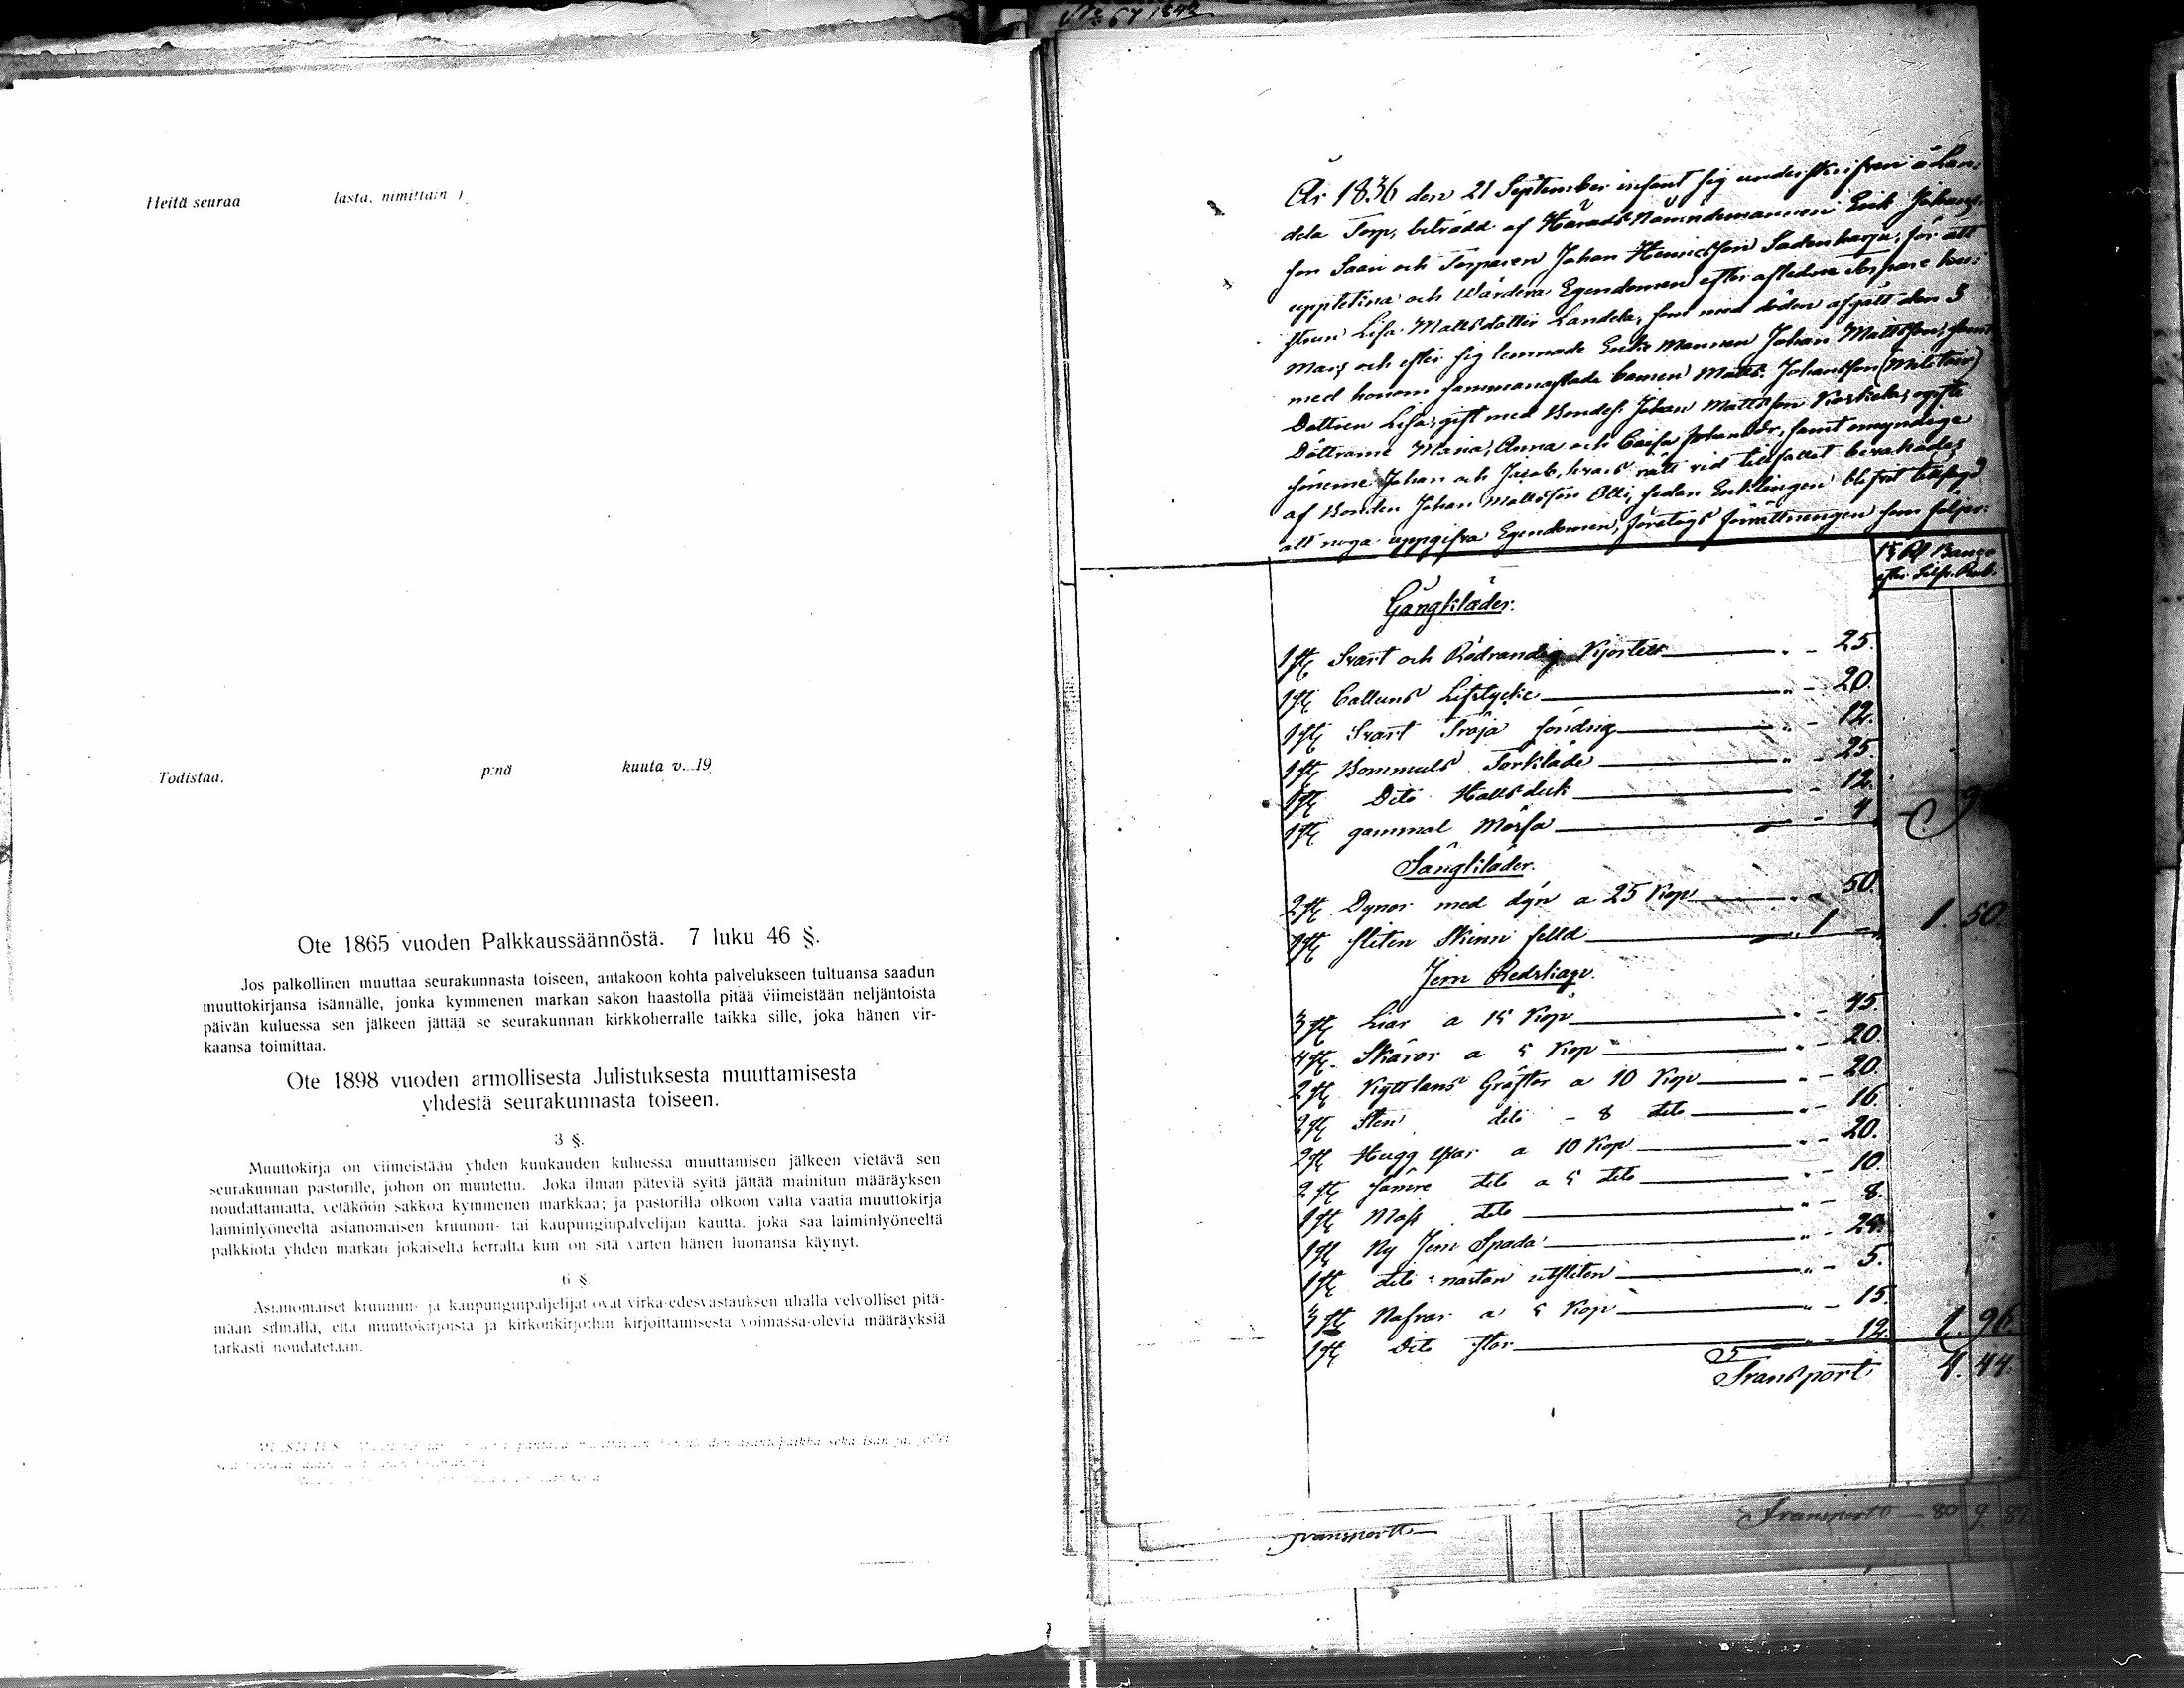 Heitä seuraa lasta, nimittäin
Todistaa. p:nä kuuta v. 19
Ote 1865 vuoden Palkkaussäännöstä. 7 luku 46 §.
Jos palkollinen muuttaa seurakunnasta toiseen, antakoon kohta palvelukseen tultuansa saadun
muuttokirjansa isännälle, jonka kymmenen markan sakon haastolla pitää viimeistään neljäntoista
päivän kuluessa sen jälkeen jättää se seurakunnan kirkkoherralle taikka sille, joka hänen vir-
kaansa toimittaa.
Ote 1898 vuoden armollisesta Julistuksesta muuttamisesta
yhdestä seurakunnasta toiseen.
3 §.
Muuttokirja on viimeistään yhden kuukauden kuluessa muuttamisen jälkeen vietävä sen
seurakunnan pastorille, johon on muutettu. Joka ilman päteviä syitä jättää mainitun määräyksen
noudattamatta, vetäköön sakkoa kymmenen markkaa; ja pastorilla olkoon valta vaatia muuttokirja
laiminlyöneeltä asianomaisen kruunun- tai kaupunginpalvelijan kautta, joka saa laiminlyöneeltä
palkkiota yhden markan jokaiselta kerralta kun on sitä varten hänen luonansa käynyt.
6 §.
Asianomaiset kruunun- ja kaupunginpaljelijat ovat virka-edesvastauksen uhalla velvolliset pitä-
mään silmällä, että muuttokirjoista ja kirkonkirjoihin kirjoittamisesta voimassa-olevia määräyksiä
tarkasti noudatetaan.
asuntopaikka sekä isän ja, jollei
67 1842
År 1836 den 21 September infant sig underskrifven å Lan:
dela Torp, biträdd af Härads Nämndemannen Erik Johans-
son Saari och Torparen Johan Henricsson Sadenharju, för att
uppteckna och Wärdera Egendomen efter afledne Torpare hu:
strun Lisa Mattsdotter Landela, som med döden afgått den 3
Mars och efter sig lemnade Enke Mannen Johan Mattsson, samt
med honom sammanaflade barnen Matts Johansson (Militair)
Dottren Lisa, gift med Bonde Johan Mattsson Koskela; ogifte
Döttrarne Maria, Anna och Caisa, samt omyndige
sönerne Johan och Jacob, hvars rätt vid tillfället bevakades
af Bonden Johan Mattsson Olli, sedan Enklingen blifvit tillsagd
att noga uppgifva Egendomen, företogs förrättningen som följer:
Banco
efter Silfv. Rub.
Gångkläder.
1 st Svart och Rödrandig Kjortel " - 25.
1 st Cattuns Lifstycke " - 20.
1 st Svart Tröja söndrig " - 12.
1 st Bommuls Förkläde " - 25.
1 st Dito Halsduk " - 12.
1 st gammal Mössa " - 4
Sängkläder.
2 st Dynor med dyn a 25 Kop " - 50.
1 st sliten Skinn felld " 1 - 1. 50.
Jern Redskap.
3 st Liar a 15 Kop " - 45.
4 st Skäror a 5 Kop " - 20.
2 st Kyttlans Gräftor a 10 Kop " - 20.
2 st Sten dito - 8 dito " - 16.
2 st Hugg Yxar a 10 Kop " - 20.
2 st sämre dito a 5 dito " - 10.
1 st dito " - 8.
1 st Ny Jern Spada " - 25.
1 st dito nästan utsliten " - 5.
3 st Nafvar a 5 Kop " - 15.
1 st Dito stor " - 12. 1. 96.
Transport 4. 44.
Transport
Transport 80 9 87